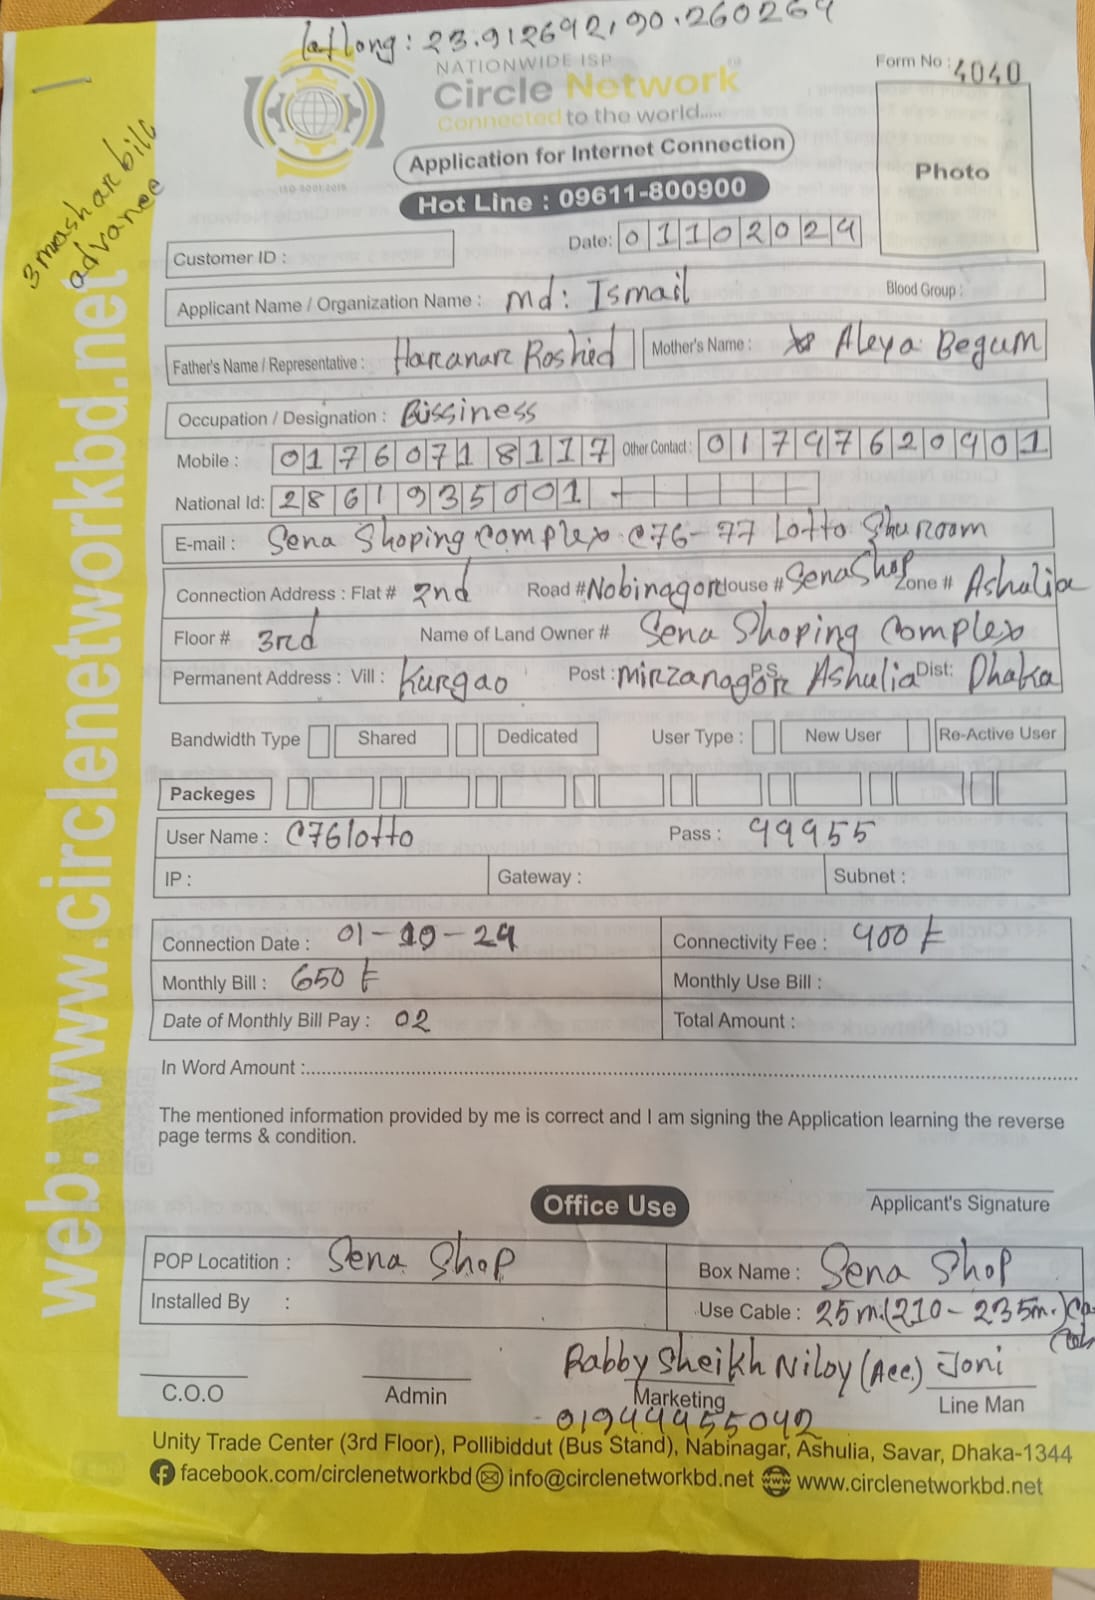 lat long: 23.912692, 90.260269
NATIONWIDE ISP
Circle Network
Connected to the world.....
ISO 9001:2015
Form No : 4040
Photo
Application for Internet Connection
Hot Line : 09611-800900
3 mashar bill
advance
Date: 01102024
Customer ID :
Applicant Name / Organization Name : md: Ismail Blood Group :
Father's Name / Representative : Haranar Roshed Mother's Name : Aleya Begum
Occupation / Designation : Bussiness
Mobile : 01760718117 Other Contact : 01797620901
National Id: 2861935001
E-mail : Sena Shoping Complex C76-77 Lotto Shuroom
Connection Address : Flat # 2nd Road # Nobinagor House # Sena Shop Zone # Ashulia
Floor # 3rd Name of Land Owner # Sena Shoping Complex
Permanent Address : Vill : Kurgao Post : mirzanagor P.S Ashulia Dist: Dhaka
Bandwidth Type Shared Dedicated User Type : New User Re-Active User
Packeges
User Name : C76lotto Pass : 99955
IP : Gateway : Subnet :
Connection Date : 01-10-24 Connectivity Fee : 900 t
Monthly Bill : 650 t Monthly Use Bill :
Date of Monthly Bill Pay : 02 Total Amount :
In Word Amount :
The mentioned information provided by me is correct and I am signing the Application learning the reverse
page terms & condition.
Office Use
Applicant's Signature
POP Locatition : Sena Shop Box Name : Sena Shop
Installed By : Use Cable : 25m.(210-235m.)
Rabby Sheikh Niloy (Acc.) Joni
C.O.O Admin Marketing Line Man
01944955042
Unity Trade Center (3rd Floor), Pollibiddut (Bus Stand), Nabinagar, Ashulia, Savar, Dhaka-1344
facebook.com/circlenetworkbd info@circlenetworkbd.net www.circlenetworkbd.net
web: www.circlenetworkbd.net